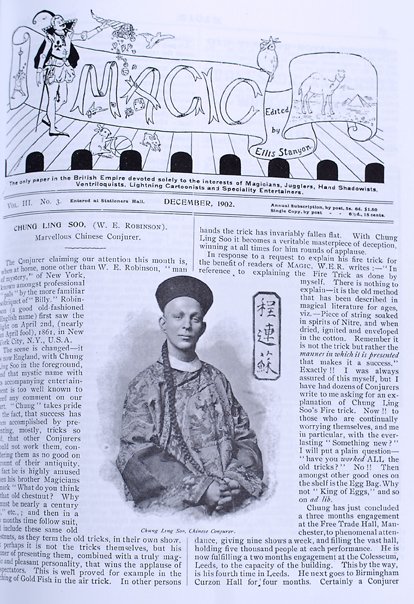 MAGIC
Edited
by
Ellis Stanyon
The only paper in the British Empire devoted solely to the interests of Magicians, Jugglers, Hand Shadowists,
Ventriloquists, Lightning Cartoonists and Speciality Entertainers.
VOL. III. No. 3. Entered at Stationers Hall.
DECEMBER, 1902.
Annual Subscription, by post, 6s. 6d. $1.60
Single Copy, by post - - 6½d., 15 cents.
CHUNG LING SOO. (W. E. ROBINSON).
Marvellous Chinese Conjurer.
The Conjurer claiming our attention this month is,
when at home, none other than W. E. Robinson, "man
of mystery," of New York,
known amongst professional
"pals" by the more familiar
"Billy." Robin-
son (a good old-fashioned
English name) first saw the
light on April 2nd, (nearly
an April fool), 1861, in New
York City, N.Y., U.S.A.
The scene is changed—it
is now England, with Chung
Ling Soo in the foreground,
and that mystic name with
its accompanying entertain-
ment is too well known to
need any comment on our
part. "Chung" takes pride
in the fact, that success has
been accomplished by pre-
senting, mostly, tricks so
old, that other Conjurers
will not work them, con-
sidering them as no good on
account of their antiquity.
In fact he is highly amused
when his brother Magicians
remark "What do you think
of that old chestnut? Why
it must be nearly a century
old," etc., and then in a
few months time follow suit,
and include these same old
tricks, as they term the old tricks, in their own show.
perhaps it is not the tricks themselves, but his
manner of presenting them, combined with a truly mag-
netic and pleasant personality, that wins the applause of
spectators. This is well proved for example in the
Catching of Gold Fish in the air trick. In other persons
程連蘇
Chung Ling Soo, Chinese Conjurer.
hands the trick has invariably fallen flat. With Chung
Ling Soo it becomes a veritable masterpiece of deception,
winning at all times for him rounds of applause.
In response to a request to explain his fire trick for
the benefit of readers of MAGIC, W.E.R. writes:—"In
reference to explaining the Fire Trick as done by
myself. There is nothing to
explain—it is the old method
that has been described in
magical literature for ages,
viz.—Piece of string soaked
in spirits of Nitre, and when
dried, ignited and enveloped
in the cotton. Remember it
is not the trick but rather the
manner in which it is presented
that makes it a success."
Exactly!! I was always
assured of this myself, but I
have had dozens of Conjurers
write to me asking for an ex-
planation of Chung Ling
Soo's Fire trick. Now!! to
those who are continually
worrying themselves, and me
in particular, with the ever-
lasting "Something new?"
I will put a plain question—
"have you worked ALL the
old tricks?" No!! Then
amongst other good ones on
the shelf is the Egg Bag. Why
not "King of Eggs," and so
on ad lib.
Chung has just concluded
a three months engagement
at the Free Trade Hall, Man-
chester, to phenomenal atten-
dance, giving nine shows a week, and filling the vast hall,
holding five thousand people at each performance. He is
now fulfilling a two months engagement at the Colosseum,
Leeds, to the capacity of the building. This by the way,
is his fourth time in Leeds. He next goes to Birmingham
Curzon Hall for four months. Certainly a Conjurer